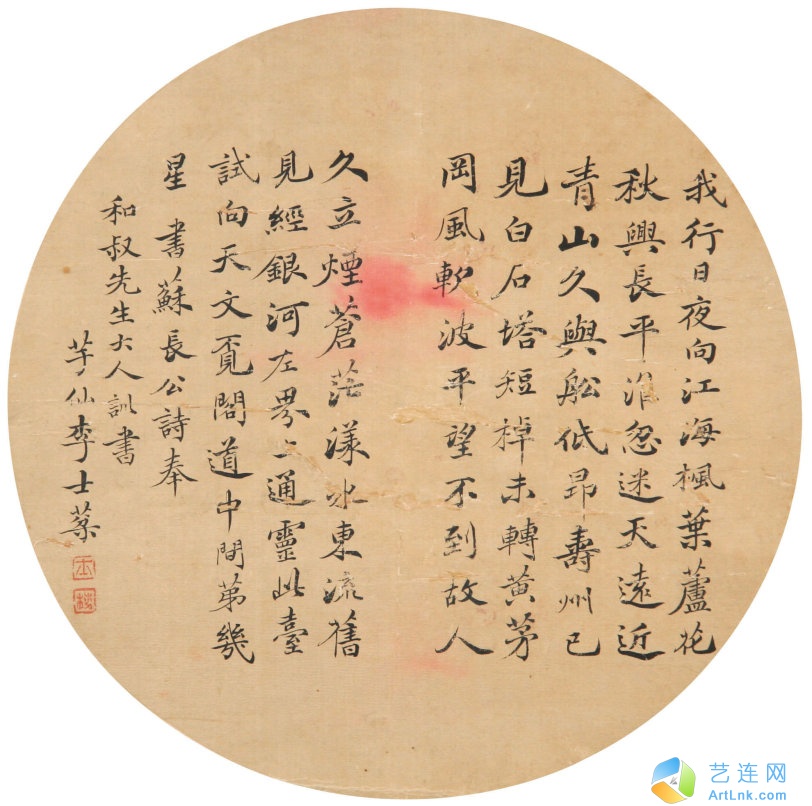 我行日夜向江海楓葉蘆花
秋興長平淮忽迷天遠近
青山久與舩低昂壽州已
見白石塔短棹未轉黃茅
岡風軟波平望不到故人
久立煙蒼茫漾水東流舊
見經銀河左界上通靈此臺
試向天文覔閣道中間第幾
星 書蘇長公詩奉
和叔先生大人訓書
芋仙李士棻
艺连网
ArtLnk.com